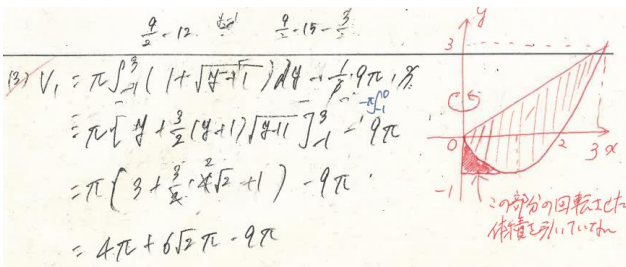 9/2 - 12 9/2 - 15 - 3/2
(3) V₁ = π∫₋₁³ (1+√(y+1)) dy - 1/3・9π・3
-π∫₋₁⁰
= π[ y + 3/2 (y+1)√(y+1) ]₋₁³ - 9π
= π(3 + 3/2・4√2 + 1) - 9π
2
= 4π + 6√2π - 9π
y
3
0
2
3
x
-1
この部分の回転させた
体積を引いていない